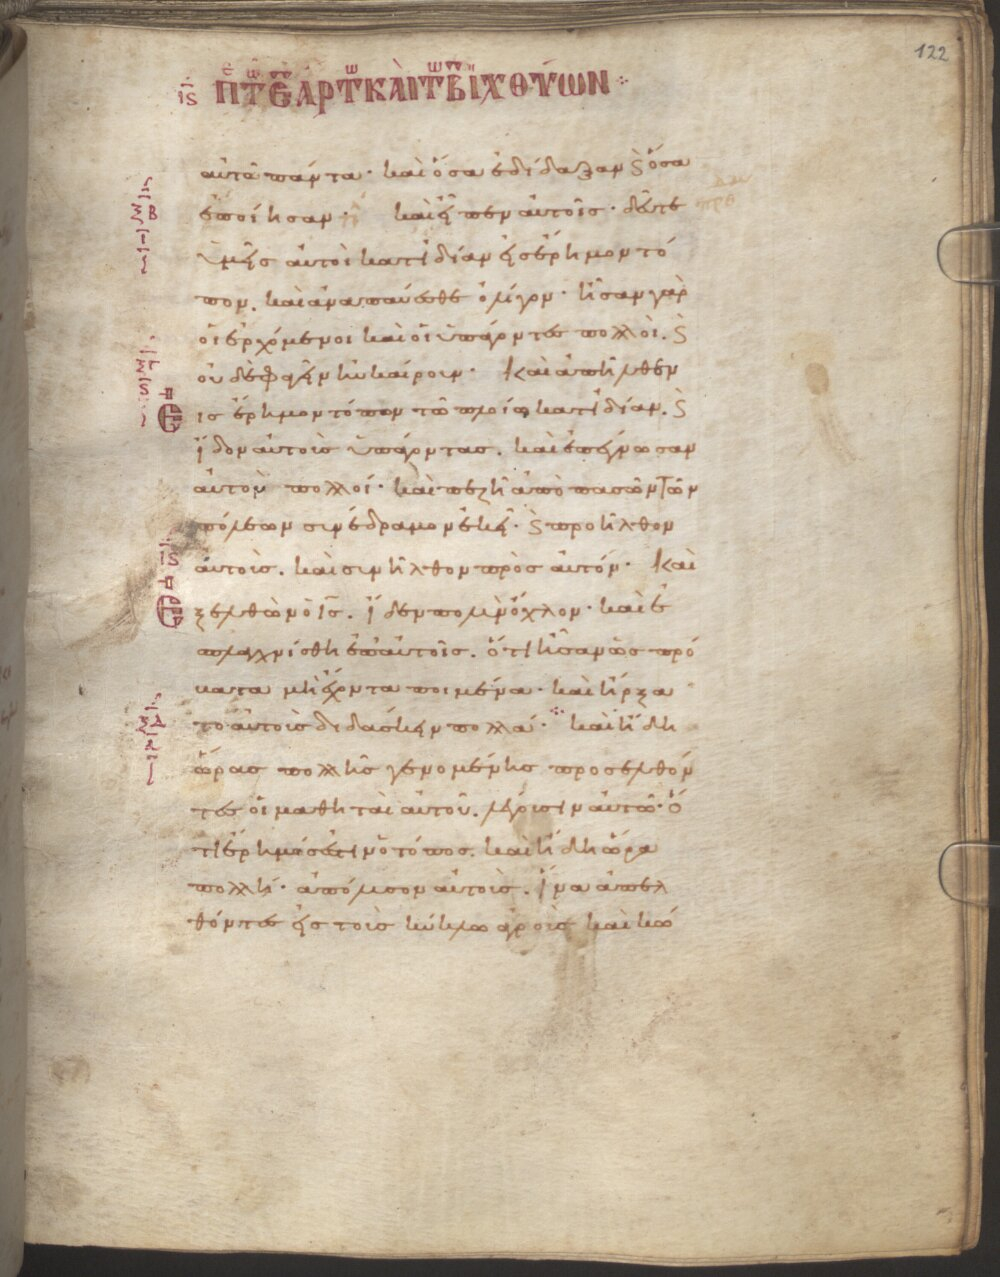 122
ιϛ Π Τ Ε ΑΡΤ ΚΑΙ Τ Β ΙΧΘΥΩΝ
αὐτῶ πάντα· καὶ ὅσα ἐδίδαξαν ϛ ὅσα
ἐποίησαν· καὶ εἶπεν αὐτοῖς· δεῦτε
ὑμεῖς αὐτοὶ κατιδίαν εἰς ἔρημον τό
πον. καὶ ἀναπαύεσθε ὀλίγον· ἦσαν γὰρ
οἱ ἐρχόμενοι καὶ οἱ ὑπάγοντες πολλοὶ. ϛ
οὐδὲ φαγεῖν ηὐκαίρουν· Καὶ ἀπῆλθεν
εἰς ἔρημον τόπον τῶ πλοίω κατιδίαν. ϛ
ἴδον αὐτοὺς ὑπάγοντας. καὶ ἐπέγνωσαν
αὐτὸν πολλοί· καὶ πεζῆ ἀπὸ πασῶν τῶν
πόλεων συνέδραμον ἐκεῖ· ϛ προῆλθον
αὐτοὺς. καὶ συνῆλθον πρὸς αὐτόν· Καὶ
ἐξελθὼν ὁ ις. ἴδεν πολὺν ὄχλον· καὶ ἐ
σπλαγχνίσθη ἐπ αὐτοῖς. ὅτι ἦσαν ὡς πρό
βατα μὴ ἔχοντα ποιμένα· καὶ ἤρξα
το αὐτοὺς διδάσκειν πολλά· καὶ ἤδη
ὥρας πολλῆς γενομένης προσελθόν
τες οἱ μαθηταὶ αὐτοῦ. λέγουσιν αὐτῶ· ὅ
τι ἔρημός ἐστιν ὁ τόπος. καὶ ἤδη ὥρα
πολλή· ἀπόλυσον αὐτοὺς. ἵνα ἀπελ
θόντες εἰς τοὺς κύκλω ἀγροὺς καὶ κώ